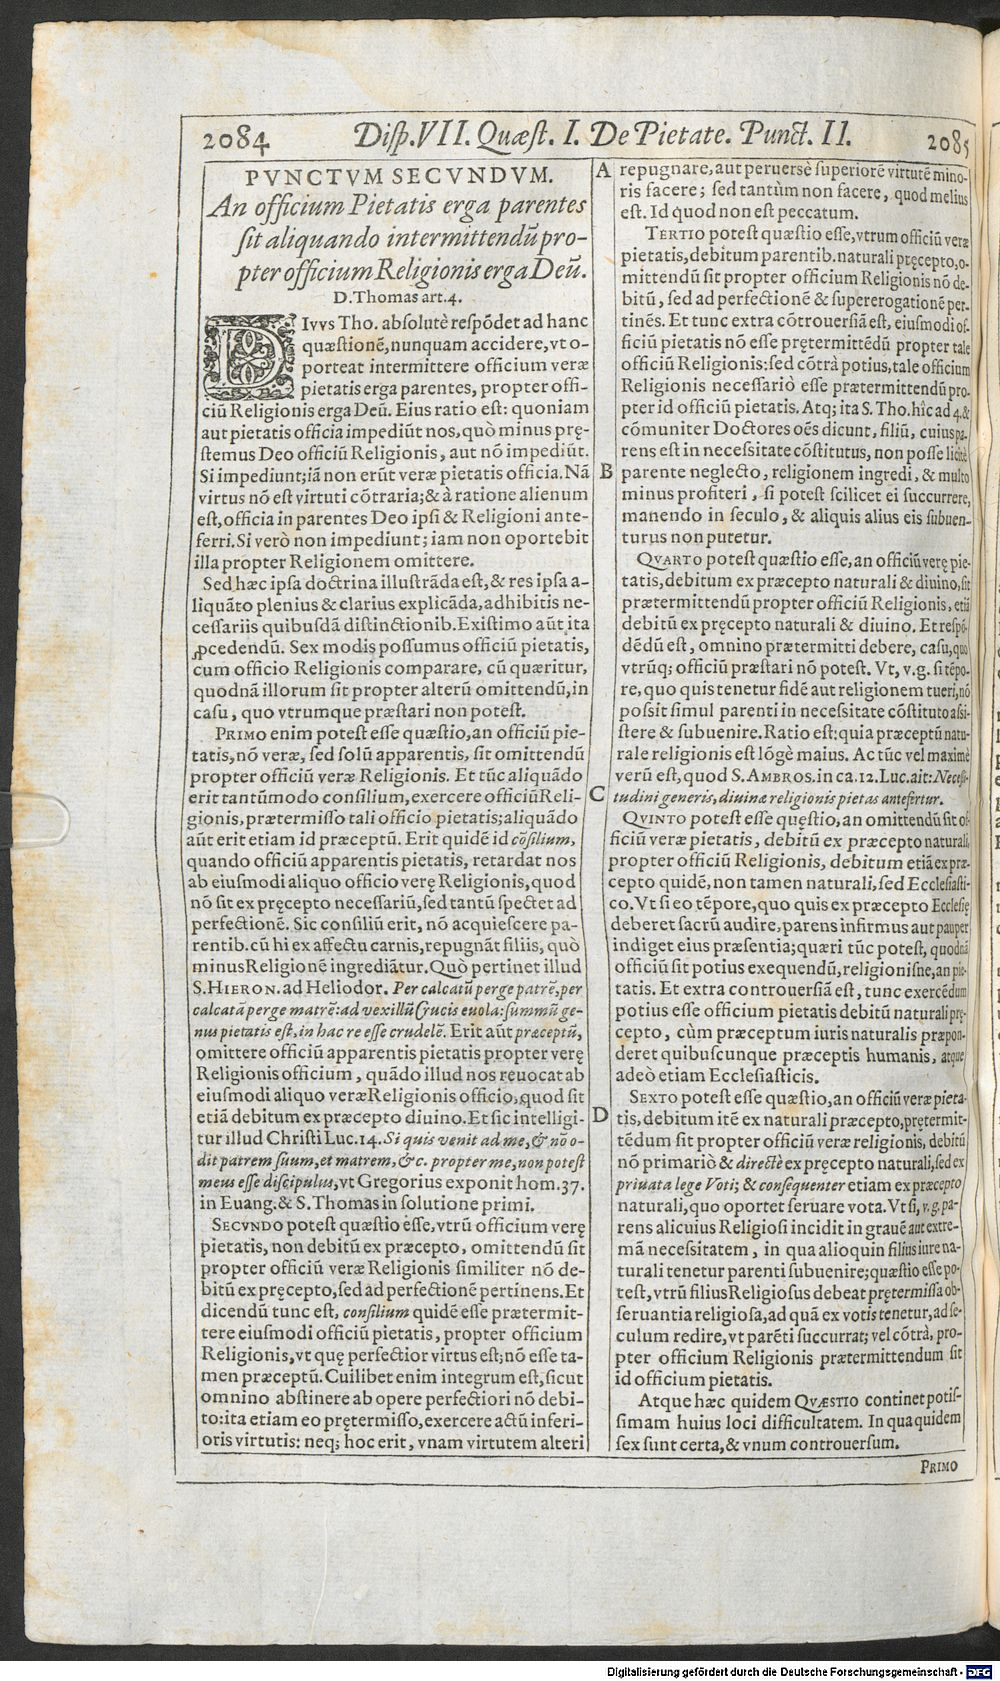 2084 Disp. VII. Quæst. I. De Pietate. Punct. II. 2085
PVNCTVM SECVNDVM.
An officium Pietatis erga parentes
sit aliquando intermittendũ pro-
pter officium Religionis erga Deũ.
D. Thomas art. 4.
DIVVS Tho. absolutè respõdet ad hanc
quæstionẽ, nunquam accidere, vt o-
porteat intermittere officium veræ
pietatis erga parentes, propter offi-
ciũ Religionis erga Deũ. Eius ratio est: quoniam
aut pietatis officia impediũt nos, quò minus prę-
stemus Deo officiũ Religionis, aut nõ impediũt.
Si impediunt; iã non erũt veræ pietatis officia. Nã
virtus nõ est virtuti cõtraria; & à ratione alienum
est, officia in parentes Deo ipsi & Religioni ante-
ferri. Si verò non impediunt; iam non oportebit
illa propter Religionem omittere.
Sed hæc ipsa doctrina illustrãda est, & res ipsa a-
liquãto plenius & clarius explicãda, adhibitis ne-
cessariis quibusdã distinctionib. Existimo aũt ita
ꝓcedendũ. Sex modis possumus officiũ pietatis,
cum officio Religionis comparare, cũ quæritur,
quodnã illorum sit propter alterũ omittendũ, in
casu, quo vtrumque præstari non potest.
PRIMO enim potest esse quæstio, an officiũ pie-
tatis, nõ veræ, sed solũ apparentis, sit omittendũ
propter officiũ veræ Religionis. Et tũc aliquãdo
erit tantũmodo consilium, exercere officiũ Reli-
gionis, prætermisso tali officio pietatis; aliquãdo
aũt erit etiam id præceptũ. Erit quidẽ id cõsilium,
quando officiũ apparentis pietatis, retardat nos
ab eiusmodi aliquo officio verę Religionis, quod
nõ sit ex pręcepto necessariũ, sed tantũ spectet ad
perfectionẽ. Sic consiliũ erit, nõ acquiescere pa-
rentib. cũ hi ex affectu carnis, repugnãt filiis, quò
minus Religionẽ ingrediãtur. Quò pertinet illud
S. HIERON. ad Heliodor. Per calcatũ perge patrẽ, per
calcatã perge matrẽ: ad vexillũ Crucis euola: summũ ge-
nus pietatis est, in hac re esse crudelẽ. Erit aũt præceptũ,
omittere officiũ apparentis pietatis propter verę
Religionis officium, quãdo illud nos reuocat ab
eiusmodi aliquo veræ Religionis officio, quod sit
etiã debitum ex præcepto diuino. Et sic intelligi-
tur illud Christi Luc. 14. Si quis venit ad me, & nõ o-
dit patrem suum, et matrem, &c. propter me, non potest
meus esse discipulus, vt Gregorius exponit hom. 37.
in Euang. & S. Thomas in solutione primi.
SECVNDO potest quæstio esse, vtrũ officium verę
pietatis, non debitũ ex præcepto, omittendũ sit
propter officiũ veræ Religionis similiter nõ de-
bitũ ex pręcepto, sed ad perfectionẽ pertinens. Et
dicendũ tunc est, consilium quidẽ esse prætermit-
tere eiusmodi officiũ pietatis, propter officium
Religionis, vt quę perfectior virtus est; nõ esse ta-
men præceptũ. Cuilibet enim integrum est, sicut
omnino abstinere ab opere perfectiori nõ debi-
to: ita etiam eo prętermisso, exercere actũ inferi-
oris virtutis: neq; hoc erit, vnam virtutem alteri
A repugnare, aut peruersè superiorẽ virtutẽ mino-
ris facere; sed tantùm non facere, quod melius
est. Id quod non est peccatum.
TERTIO potest quæstio esse, vtrum officiũ veræ
pietatis, debitum parentib. naturali pręcepto, o-
mittendũ sit propter officium Religionis nõ de-
bitũ, sed ad perfectionẽ & supererogationẽ per-
tinẽs. Et tunc extra cõtrouersiã est, eiusmodi of-
ficiũ pietatis nõ esse prętermittẽdũ propter tale
officiũ Religionis: sed cõtrà potius, tale officium
Religionis necessariò esse prætermittendũ pro-
pter id officiũ pietatis. Atq; ita S. Tho. hic ad 4. &
cõmuniter Doctores oẽs dicunt, filiũ, cuius pa-
rens est in necessitate cõstitutus, non posse licitè
B parente neglecto, religionem ingredi, & multo
minus profiteri, si potest scilicet ei succurrere,
manendo in seculo, & aliquis alius eis subuen-
turus non putetur.
QVARTO potest quæstio esse, an officiũ verę pie-
tatis, debitum ex præcepto naturali & diuino, sit
prætermittendũ propter officiũ Religionis, etiã
debitũ ex pręcepto naturali & diuino. Et respõ-
dẽdũ est, omnino prætermitti debere, casu, quo
vtrũq; officiũ præstari nõ potest. Vt, v.g. si tẽpo-
re, quo quis tenetur fidẽ aut religionem tueri, nõ
possit simul parenti in necessitate cõstituto assi-
stere & subuenire. Ratio est: quia præceptũ natu-
rale religionis est lõgè maius. Ac tũc vel maximè
verũ est, quod S. AMBROS. in ca. 12. Luc. ait: Necessi-
C tudini generis, diuinæ religionis pietas antefertur.
QVINTO potest esse quęstio, an omittendũ sit of-
ficiũ veræ pietatis, debitũ ex præcepto naturali,
propter officiũ Religionis, debitum etiã ex præ-
cepto quidẽ, non tamen naturali, sed Ecclesiasti-
co. Vt si eo tẽpore, quo quis ex præcepto Ecclesię
deberet sacrũ audire, parens infirmus aut pauper
indiget eius præsentia; quæri tũc potest, quodnã
officiũ sit potius exequendũ, religionisne, an pie-
tatis. Et extra controuersiã est, tunc exercẽdum
potius esse officium pietatis debitũ naturali prę-
cepto, cùm præceptum iuris naturalis præpon-
deret quibuscunque præceptis humanis, atque
adeò etiam Ecclesiasticis.
SEXTO potest esse quæstio, an officiũ veræ pieta-
D tis, debitum itẽ ex naturali præcepto, prętermit-
tẽdum sit propter officiũ veræ religionis, debitũ
nõ primariò & directè ex pręcepto naturali, sed ex
priuata lege Voti; & consequenter etiam ex præcepto
naturali, quo oportet seruare vota. Vt si, v.g. pa-
rens alicuius Religiosi incidit in grauẽ aut extre-
mã necessitatem, in qua alioquin filius iure na-
turali tenetur parenti subuenire; quæstio esse po-
test, vtrũ filius Religiosus debeat prętermissa ob-
seruantia religiosa, ad quã ex votis tenetur, ad se-
culum redire, vt parẽti succurrat; vel cõtrà, pro-
pter officium Religionis prætermittendum sit
id officium pietatis.
Atque hæc quidem QVÆSTIO continet potis-
simam huius loci difficultatem. In qua quidem
sex sunt certa, & vnum controuersum.
PRIMO
Digitalisierung gefördert durch die Deutsche Forschungsgemeinschaft - DFG